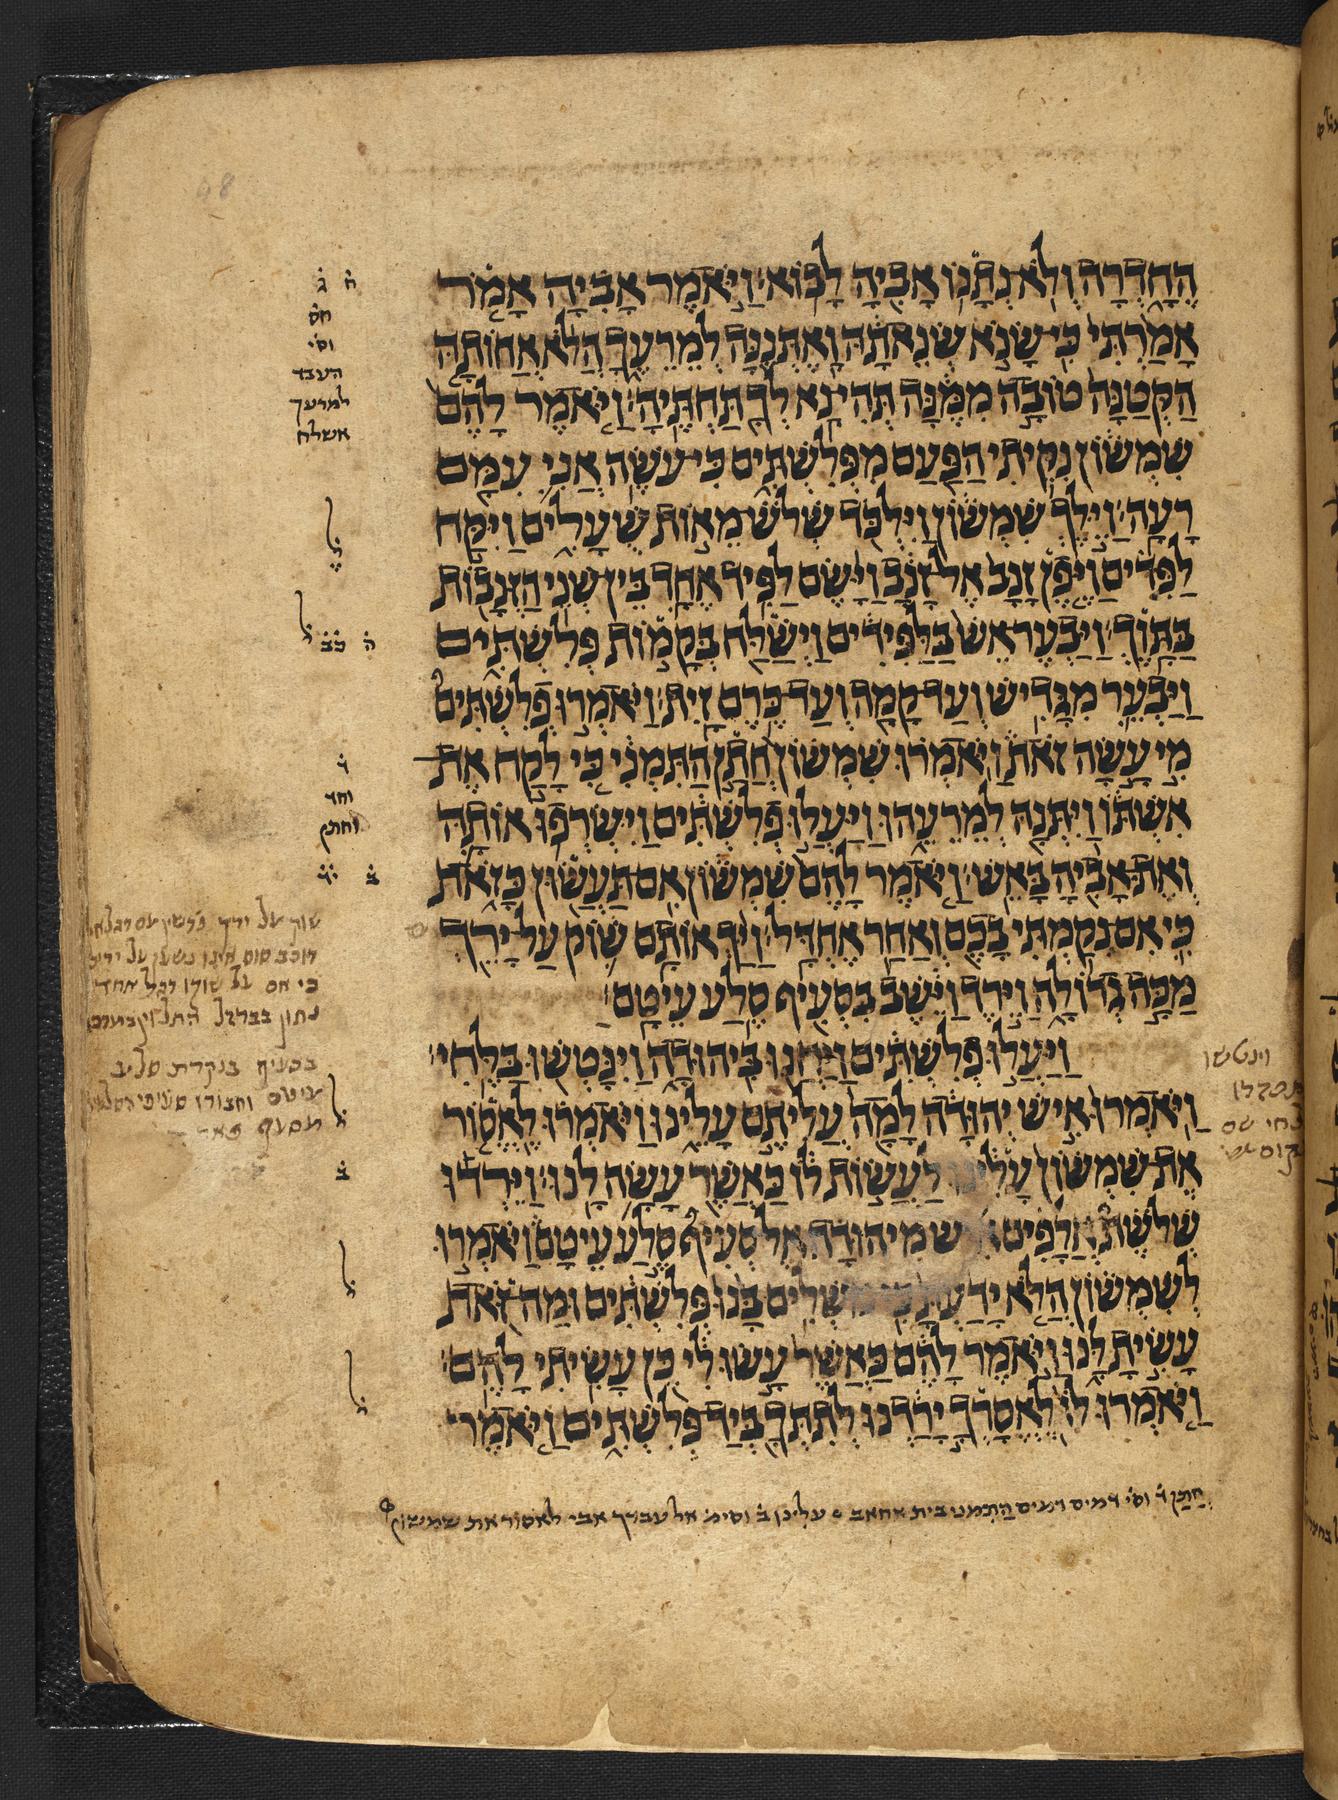 הֶחָדְרָה וְלֹא נְתָנוֹ אָבִיהָ לָבוֹא׃ וַיֹּאמֶר אָבִיהָ אָמֹר
אָמַרְתִּי כִּי שָׂנֹא שְׂנֵאתָהּ וָאֶתְּנֶנָּה לְמֵרֵעֶךָ הֲלֹא אֲחוֹתָהּ
הַקְּטַנָּה טוֹבָה מִמֶּנָּה תְּהִי נָא לְךָ תַּחְתֶּיהָ׃ וַיֹּאמֶר לָהֶם
שִׁמְשׁוֹן נִקֵּיתִי הַפַּעַם מִפְּלִשְׁתִּים כִּי עֹשֶׂה אֲנִי עִמָּם
רָעָה׃ וַיֵּלֶךְ שִׁמְשׁוֹן וַיִּלְכֹּד שְׁלֹשׁ מֵאוֹת שֻׁעָלִים וַיִּקַּח
לַפִּדִים וַיֶּפֶן זָנָב אֶל זָנָב וַיָּשֶׂם לַפִּיד אֶחָד בֵּין שְׁנֵי הַזְּנָבוֹת
בַּתָּוֶךְ׃ וַיַּבְעֶר אֵשׁ בַּלַּפִּידִים וַיְשַׁלַּח בְּקָמוֹת פְּלִשְׁתִּים
וַיַּבְעֵר מִגָּדִישׁ וְעַד קָמָה וְעַד כֶּרֶם זָיִת׃ וַיֹּאמְרוּ פְלִשְׁתִּים
מִי עָשָׂה זֹאת וַיֹּאמְרוּ שִׁמְשׁוֹן חֲתַן הַתִּמְנִי כִּי לָקַח אֶת
אִשְׁתּוֹ וַיִּתְּנָהּ לְמֵרֵעֵהוּ וַיַּעֲלוּ פְלִשְׁתִּים וַיִּשְׂרְפוּ אוֹתָהּ
וְאֶת אָבִיהָ בָּאֵשׁ׃ וַיֹּאמֶר לָהֶם שִׁמְשׁוֹן אִם תַּעֲשׂוּן כָּזֹאת
כִּי אִם נִקַּמְתִּי בָכֶם וְאַחַר אֶחְדָּל׃ וַיַּךְ אוֹתָם שׁוֹק עַל יָרֵךְ
מַכָּה גְדוֹלָה וַיֵּרֶד וַיֵּשֶׁב בִּסְעִיף סֶלַע עֵיטָם׃
וַיַּעֲלוּ פְלִשְׁתִּים וַיַּחֲנוּ בִּיהוּדָה וַיִּנָּטְשׁוּ בַּלֶּחִי׃
וַיֹּאמְרוּ אִישׁ יְהוּדָה לָמָה עֲלִיתֶם עָלֵינוּ וַיֹּאמְרוּ לֶאֱסוֹר
אֶת שִׁמְשׁוֹן עָלִינוּ לַעֲשׂוֹת לוֹ כַּאֲשֶׁר עָשָׂה לָנוּ׃ וַיֵּרְדוּ
שְׁלֹשֶׁת אֲלָפִים אִישׁ מִיהוּדָה אֶל סְעִיף סֶלַע עֵיטָם וַיֹּאמְרוּ
לְשִׁמְשׁוֹן הֲלֹא יָדַעְתָּ כִּי מֹשְׁלִים בָּנוּ פְּלִשְׁתִּים וּמַה זֹּאת
עָשִׂיתָ לָּנוּ וַיֹּאמֶר לָהֶם כַּאֲשֶׁר עָשׂוּ לִי כֵּן עָשִׂיתִי לָהֶם׃
וַיֹּאמְרוּ לוֹ לֶאֱסָרְךָ יָרַדְנוּ לְתִתְּךָ בְּיַד פְּלִשְׁתִּים וַיֹּאמֶר
חֲתַן ד וסי דמים דמים הַתִּמני בית אחאב ס עלינו ב וסימ אל עבדך אבי לאסור את שמשון
ח ג
חס
וסי
העבד
למרעך
אשלח
ה ככ
ד
וחד
וחתן
ב
שוק על ירך
רוכב סוס אינו נשען על
כי אם על שוקו רגל אחד
נתון בברזל התלוי
בסעיף בנקרת סליב
עיטם
ב
וינטשו
לחי שם
מקום
98